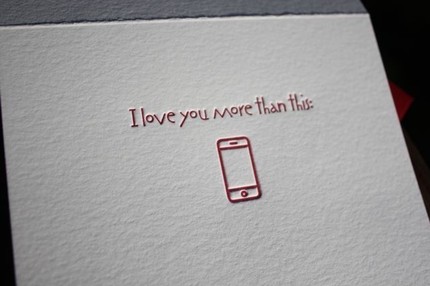 I love you more than this: